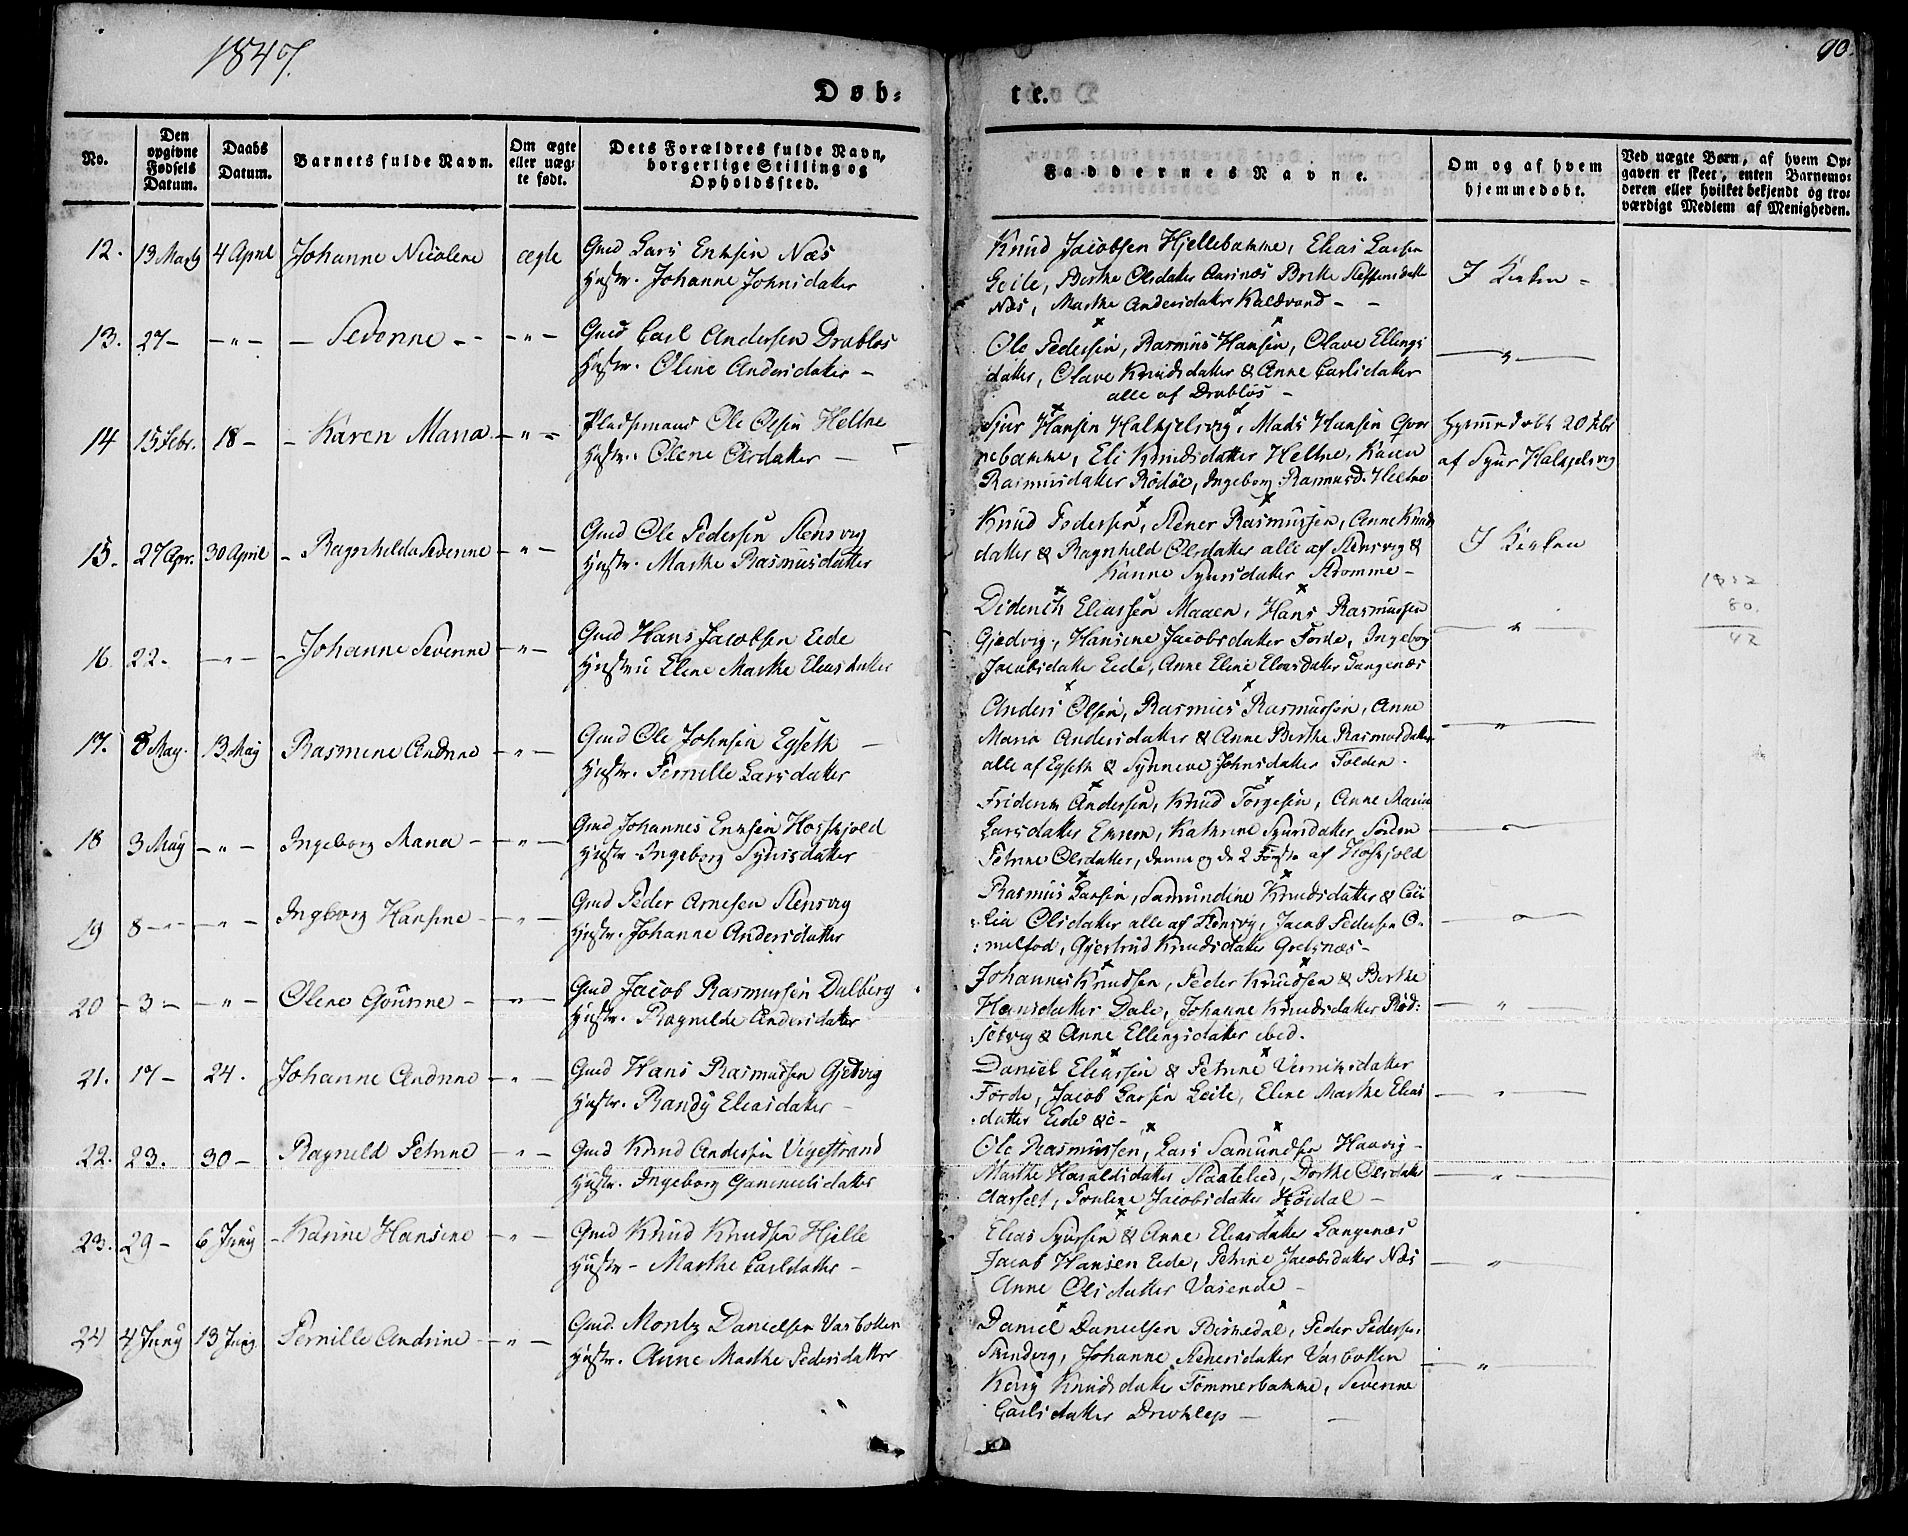 1847.
90.
Døb-
te.
No.
Den opgivne Fødsels Datum.
Daabs Datum.
Barnets fulde Navn.
Om ægte eller uægte født.
Dets Forældres fulde Navn, borgerlige Stilling og Opholdssted.
Faddernes Navne.
Om og af hvem hjemmedøbt.
Ved uægte Børn, af hvem Opgaven er skeet, enten Barnemoderen eller hvilket bekjendt og troværdigt Medlem af Menigheden.
12. 13 Marts 4 April Johanne Nicoline ægte Gmd Lars Ericksen Næs
Hustr. Johanne Johnsdatter
Knud Jacobsen Hjellebakke, Elias Larsen
Leite, Berthe Olsdatter Aarsnæs Brithe Steffensdatter
Næs, Marthe Andersdatter Kaldvand - -
I Kirken -
13. 27- -"- - Severine - - -"- Gmd Carl Andersen Drabløs
Hustr. Oline Andersdatter -
Ole Pedersen, Rasmus Hansen, Olave Ellings
datter, Olave Knudsdatter & Anne Carlsdatter
alle af Drabløs -
"
14 15 Febr. 18- - Karen Maria -"- Pladsmand Ole Olsen Heltne
Hustr. Olene Olsdatter -
Sjur Hansen Halkjelsvig, Mads Hansen
nebakke, Eli Knudsdatter Heltne, Karen
Rasmusdatter Rødøe, Ingeborg Rasmusd. Heltne
Hjemmedøbt 20 Febr
af Sjur Halkjelsvig
15. 27 Apr. 30 April - Ragnhilda Severine -"- Gmd Ole Pedersen Stensvig
Hustr. Marthe Rasmusdatter
Knud Pedersen, Stener Rasmussen, Anne Knuds
datter & Ragnhild Olsdatter alle af Stensvig &
Karine Sjursdatter Strømme -
I Kirken
1852
80.
42
16 22. -"- - Johanne Severine -"- Gmd Hans Jacobsen Eide
Hustru Eline Marthe Eliasdatter
Diderich Eliassen Maaen, Hans Rasmussen
Gjedvig, Hansine Jacobsdatter Førde, Ingeborg
Jacobsdatter Eide, Anne Eline Eliasdatter Langenæs
"
17. 8 May. 13 May Rasmine Andrine -"- Gmd Ole Johnsen Egseth -
Hustr. Pernille Larsdatter
Anders Olsen, Rasmus Rasmussen, Anne
Maria Andersdatter & Anne Berthe Rasmusdatter
alle af Egseth & Synneve Johnsdatter Folden.
"
18 3 May -"- Ingeborg Maria - -"- Gmd Johannes Ericksen Hoskjold
Hustr Ingeborg Sjursdatter
Friderik Andersen, Knud Torgesen, Anne Maria
Larsdatter Ekrem, Kathrine Sjursdatter
Petrine Olsdatter, denne og de 2 Første af Hoskjold
19 8 - - -"- Ingborg Hansine - -"- Gmd Peder Arnesen Stensvig
Hustr. Johanne Andersdatter
Rasmus Larsen, Samundine Knudsdatter & Ceci
lia Olsdatter alle af Stensvig, Jacob Pedersen O-
melfod, Gjertrud Knudsdatter
20 - 3 - -"- Olene Gourine - -"- Gmd Jacob Rasmussen Dalberg
Hustr. Ragnilde Andersdatter
Johannes Knudsen, Peder Knudsen & Berthe
Hansdatter Dale, Johanne Knudsdatter Rød-
setvig & Anne Ellingsdatter ibed.
"
21. 17- 24. Johanne Andrine -"- Gmd Hans Rasmussen Gjedvig
Hustr. Randy Eliasdatter -
Daniel Eliassen & Petrine
Førde, Jacob Larsen Leite, Eline Marthe Elias
datter Eide &c -
"
22. 23. 30- Ragnild Petrine -"- Gmd Knud Andersen Vigestrand
Hustr. Ingeborg Gammelsdatter
Ole Rasmussen, Lars Samundsen Haavig -
Marthe Haraldsdatter Slaatelied, Dorthe Olsdatter
Aarselt, Pouline Jacobsdatter Høidal -
"
23. 29- 6 Juny - Karine Hansine -"- Gmd Knud Knudsen Hjelle
Hustr - Marthe Carlsdatter -
Elias Sjursen & Anne Eliasdatter Langenæs
Jacob Hansen Eide, Petrine Jacobsdatter Næs
Anne Olsdatter Vasende -
"
24 4 Juny 13 Juny Pernille Andrine -"- Gmd. Moritz Danielsen Vasbotten
Hustr. Anne Marthe Pedersdatter
Daniel Danielsen Birkedal, Peder Pedersen
Johanne Stenersdatter Vasbotten
Knudsdatter Tømmerbakke, Severine
Carlsdatter -
"